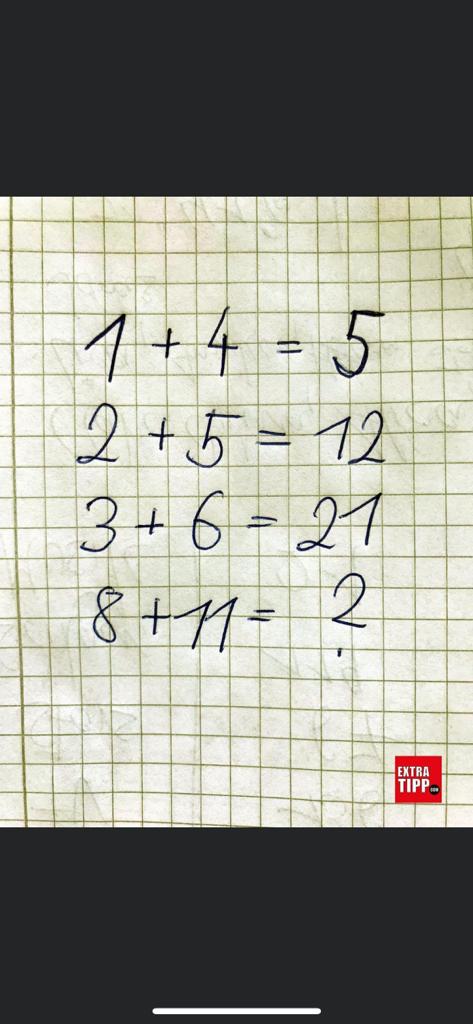 1 + 4 = 5
2 + 5 = 12
3 + 6 = 21
8 + 11 = ?
EXTRA
TIPP.com